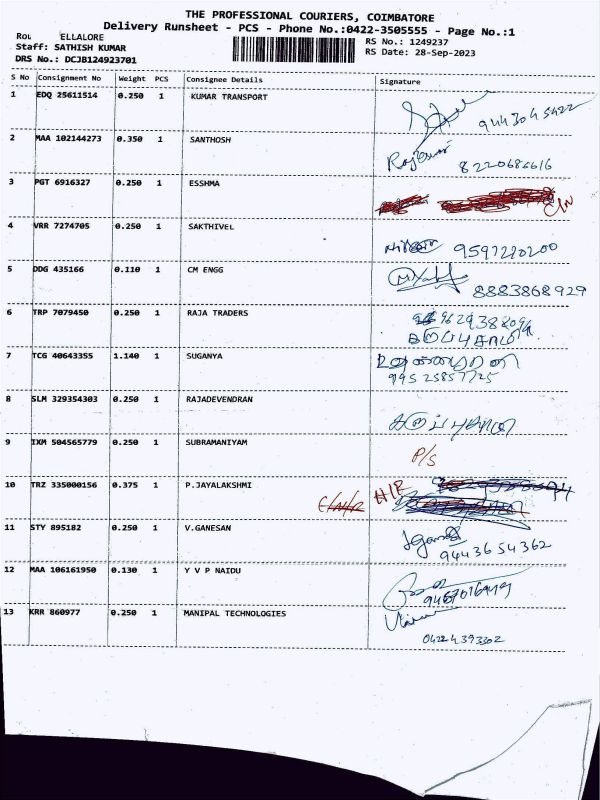 THE PROFESSIONAL COURIERS, COIMBATORE
Delivery Runsheet - PCS - Phone No.:0422-3505555 - Page No.:1
ELLALORE
RS No.: 1249237
Staff: SATHISH KUMAR
RS Date: 28-Sep-2023
DRS No.: DCJB124923701
S No Consignment No Weight PCS Consignee Details Signature
1 EDQ 25611514 0.250 1 KUMAR TRANSPORT 9443045422
2 MAA 102144273 0.350 1 SANTHOSH Rajkumar 8220684616
3 PGT 6916327 0.250 1 ESSHMA
4 VRR 7274705 0.250 1 SAKTHIVEL 9597220200
5 DDG 435166 0.110 1 CM ENGG 8883868929
6 TRP 7079450 0.250 1 RAJA TRADERS
7 TCG 40643355 1.140 1 SUGANYA
8 SLM 329354303 0.250 1 RAJADEVENDRAN
9 IXM 504565779 0.250 1 SUBRAMANIYAM P/S
10 TRZ 335000156 0.375 1 P.JAYALAKSHMI
11 STY 895182 0.250 1 V.GANESAN 9443654362
12 MAA 106161950 0.130 1 Y V P NAIDU
13 KRR 860977 0.250 1 MANIPAL TECHNOLOGIES 04224393302